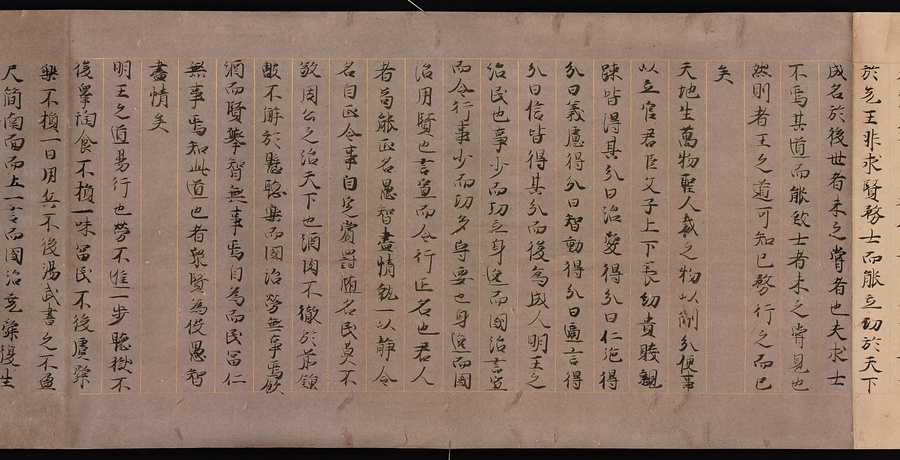 於先王非求賢務士而能立功於天下
成名於後世者未之嘗者也夫求士
不焉其道而能致士者未之嘗見也
然則者王之道可知已務行之而已
矣
天地生萬物聖人裁之物以制分便事
以立官君臣父子上下長幼貴賤親
踈皆得其分曰治愛得分曰仁施得
分曰義慮得分曰智動得分曰適言得
分曰信皆得其分而後為成人明王之
治民也事少而功立身逸而國治言寡
而令行事少而功多守要也身逸而國
治用賢也言寡而令行正名也君人
者苟能正名愚智盡情執一以静令
名自正令事自定賞罰随名民莫不
敬周公之治天下也酒肉不徹於前鍾
皷不解於懸聽樂而國治勞無事焉飲
酒而賢舉智無事焉自為而民富仁
無事焉知此道也者衆賢為伇愚智
盡情矣
明王之道易行也勞不進一步聽獄不
後睪陶食不損一味富民不後虞舜
樂不損一日用兵不後湯武書之不盈
尺簡南面而立一言而國治堯舜復生